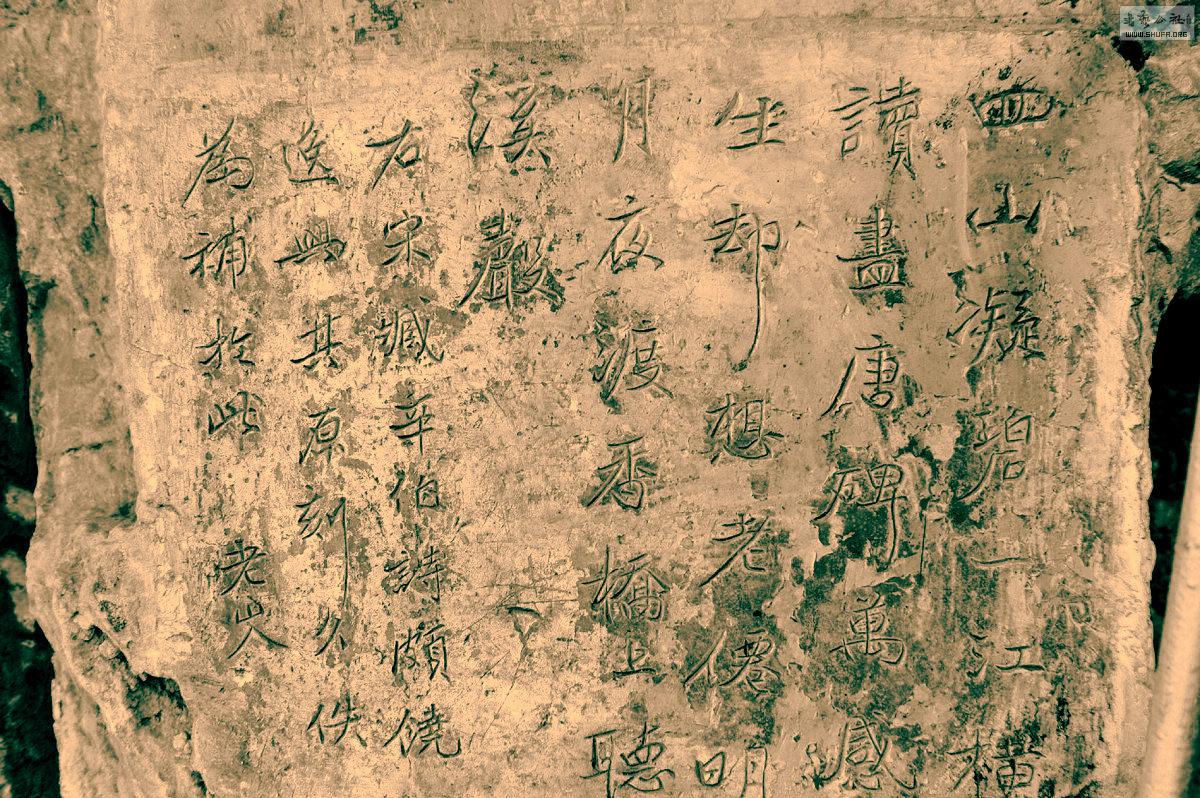 四山凝碧一江橫
讀盡唐碑萬感
生却想老僊明
月夜渡香橋上聽
溪聲
右宋臧辛伯詩頗饒
逸興其原刻久佚
為補於此 老山人
書藝公社
WWW.SHUFA.ORG